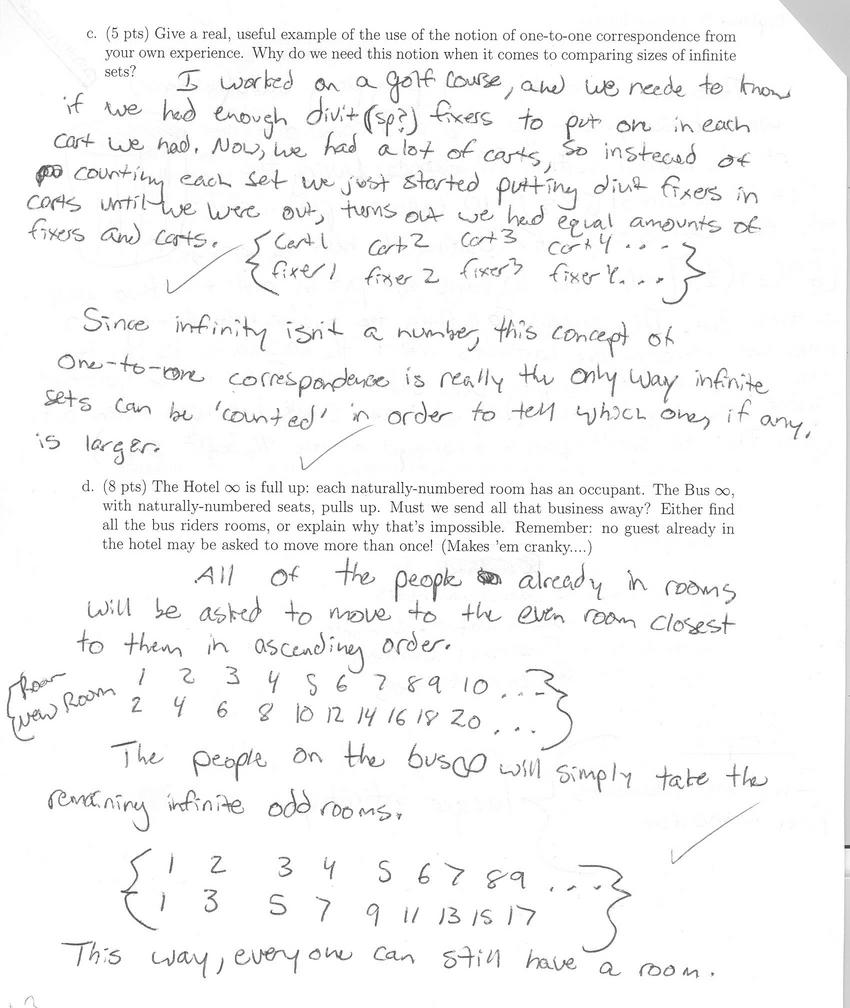 c. (5 pts) Give a real, useful example of the use of the notion of one-to-one correspondence from
your own experience. Why do we need this notion when it comes to comparing sizes of infinite
sets?
I worked on a golf course, and we neede to know
if we had enough divit (sp?) fixers to put on in each
cart we had. Now, we had a lot of carts, so instecad of
counting each set we just started putting divit fixers in
carts until we were out, turns out we had equal amounts of
fixers and carts.
{ Cart 1 cart 2 cart 3 cart 4 ... }
{ fixer 1 fixer 2 fixer 3 fixer 4 ... }
Since infinity isn't a number, this concept of
one-to-one correspondence is really the only way infinite
sets can be 'counted' in order to tell which one, if any,
is larger.
d. (8 pts) The Hotel ∞ is full up: each naturally-numbered room has an occupant. The Bus ∞,
with naturally-numbered seats, pulls up. Must we send all that business away? Either find
all the bus riders rooms, or explain why that's impossible. Remember: no guest already in
the hotel may be asked to move more than once! (Makes 'em cranky....)
All of the people already in rooms
will be asked to move to the even room closest
to them in ascending order.
{ Room 1 2 3 4 5 6 7 8 9 10 ... }
{ New Room 2 4 6 8 10 12 14 16 18 20 ... }
The people on the bus ∞ will simply take the
remaining infinite odd rooms.
{ 1 2 3 4 5 6 7 8 9 ... }
{ 1 3 5 7 9 11 13 15 17 }
This way, everyone can still have a room.